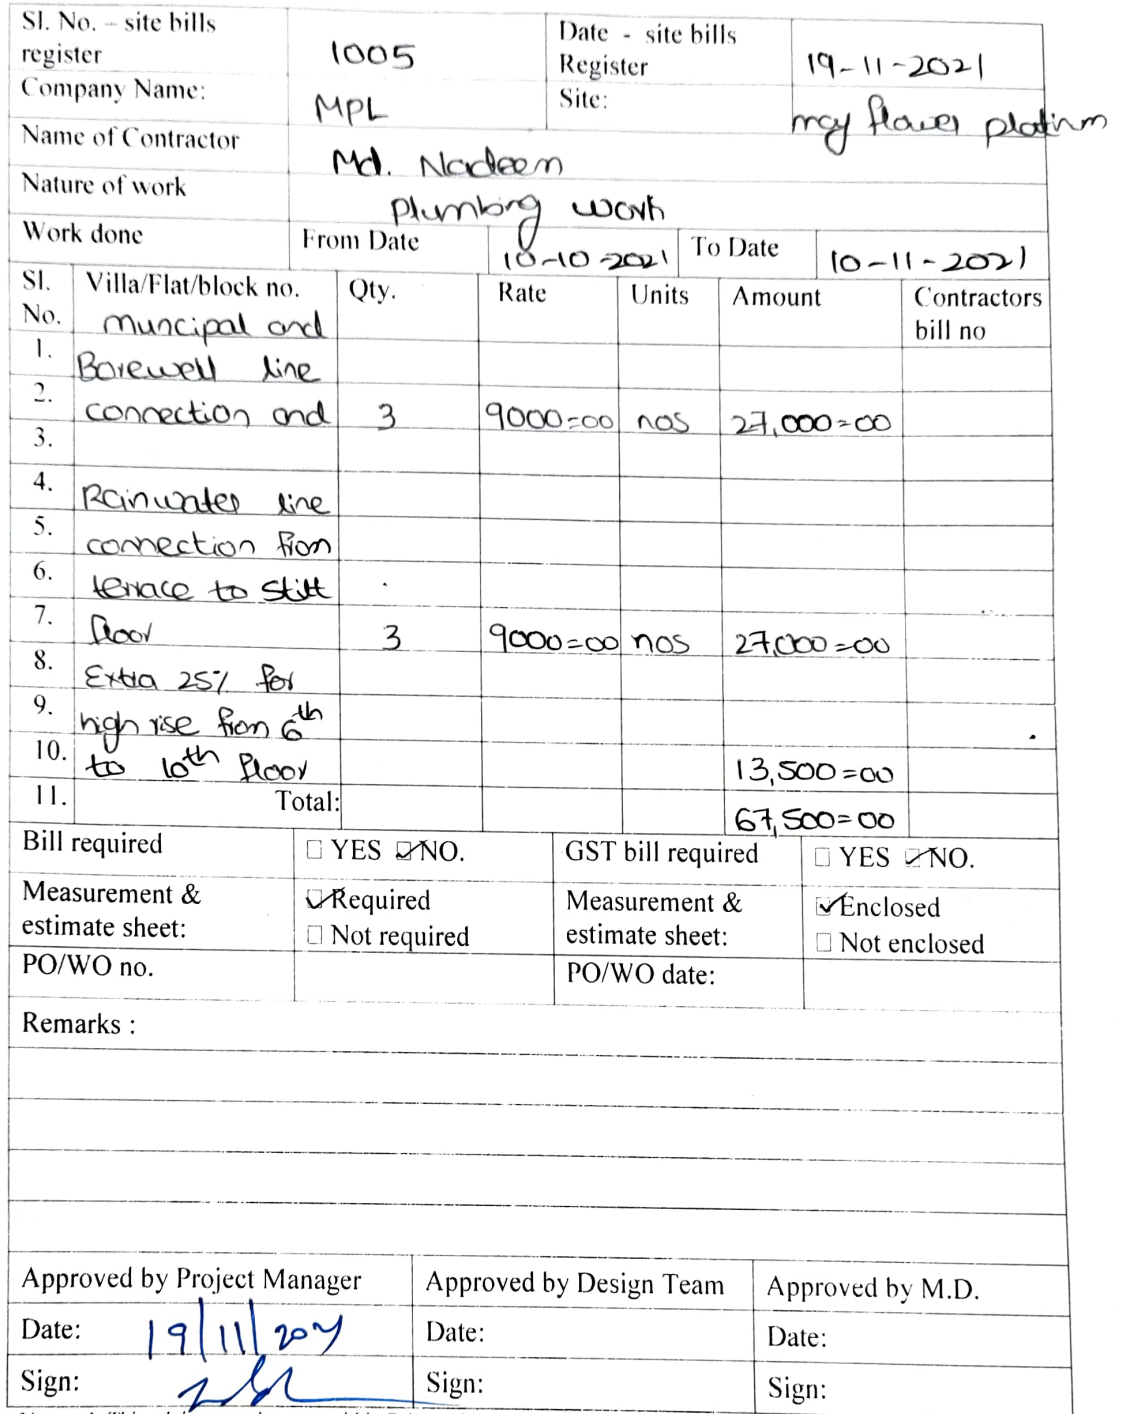 Sl. No. – site bills register 1005 Date - site bills Register 19-11-2021
Company Name: MPL Site: may flower platinm
Name of Contractor Md. Nadeem
Nature of work plumbing work
Work done From Date 10-10-2021 To Date 10-11-2021
Sl. No. Villa/Flat/block no. Qty. Rate Units Amount Contractors bill no
muncipal and
1. Borewell line
2. connection and 3 9000=00 nos 27,000=00
3.
4. Rainwater line
5. connection from
6. terrace to stilt
7. floor 3 9000=00 nos 27,000=00
8. Extra 25% for
9. high rise from 6th
10. to 10th floor 13,500=00
11. Total: 67,500=00
Bill required YES NO. GST bill required YES NO.
Measurement & estimate sheet: Required Measurement & estimate sheet: Enclosed
Not required Not enclosed
PO/WO no. PO/WO date:
Remarks :
Approved by Project Manager Approved by Design Team Approved by M.D.
Date: 19/11/2021 Date: Date:
Sign: Sign: Sign: